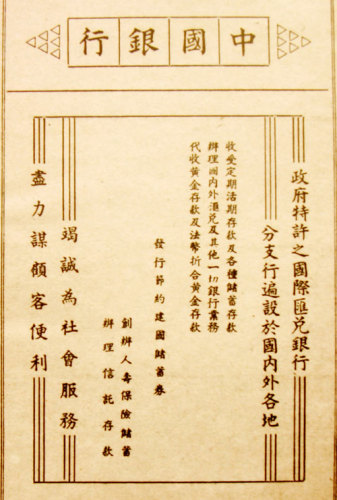 中國銀行
政府特許之國際匯兌銀行
分支行遍設於國內外各地
收受定期活期存款及各種儲蓄存款
辦理國內外匯兌及其他一切銀行業務
代收黃金存款及法幣折合黃金存款
發行節約建國儲蓄券
創辦人壽保險儲蓄
辦理信託存款
竭誠為社會服務
盡力謀顧客便利